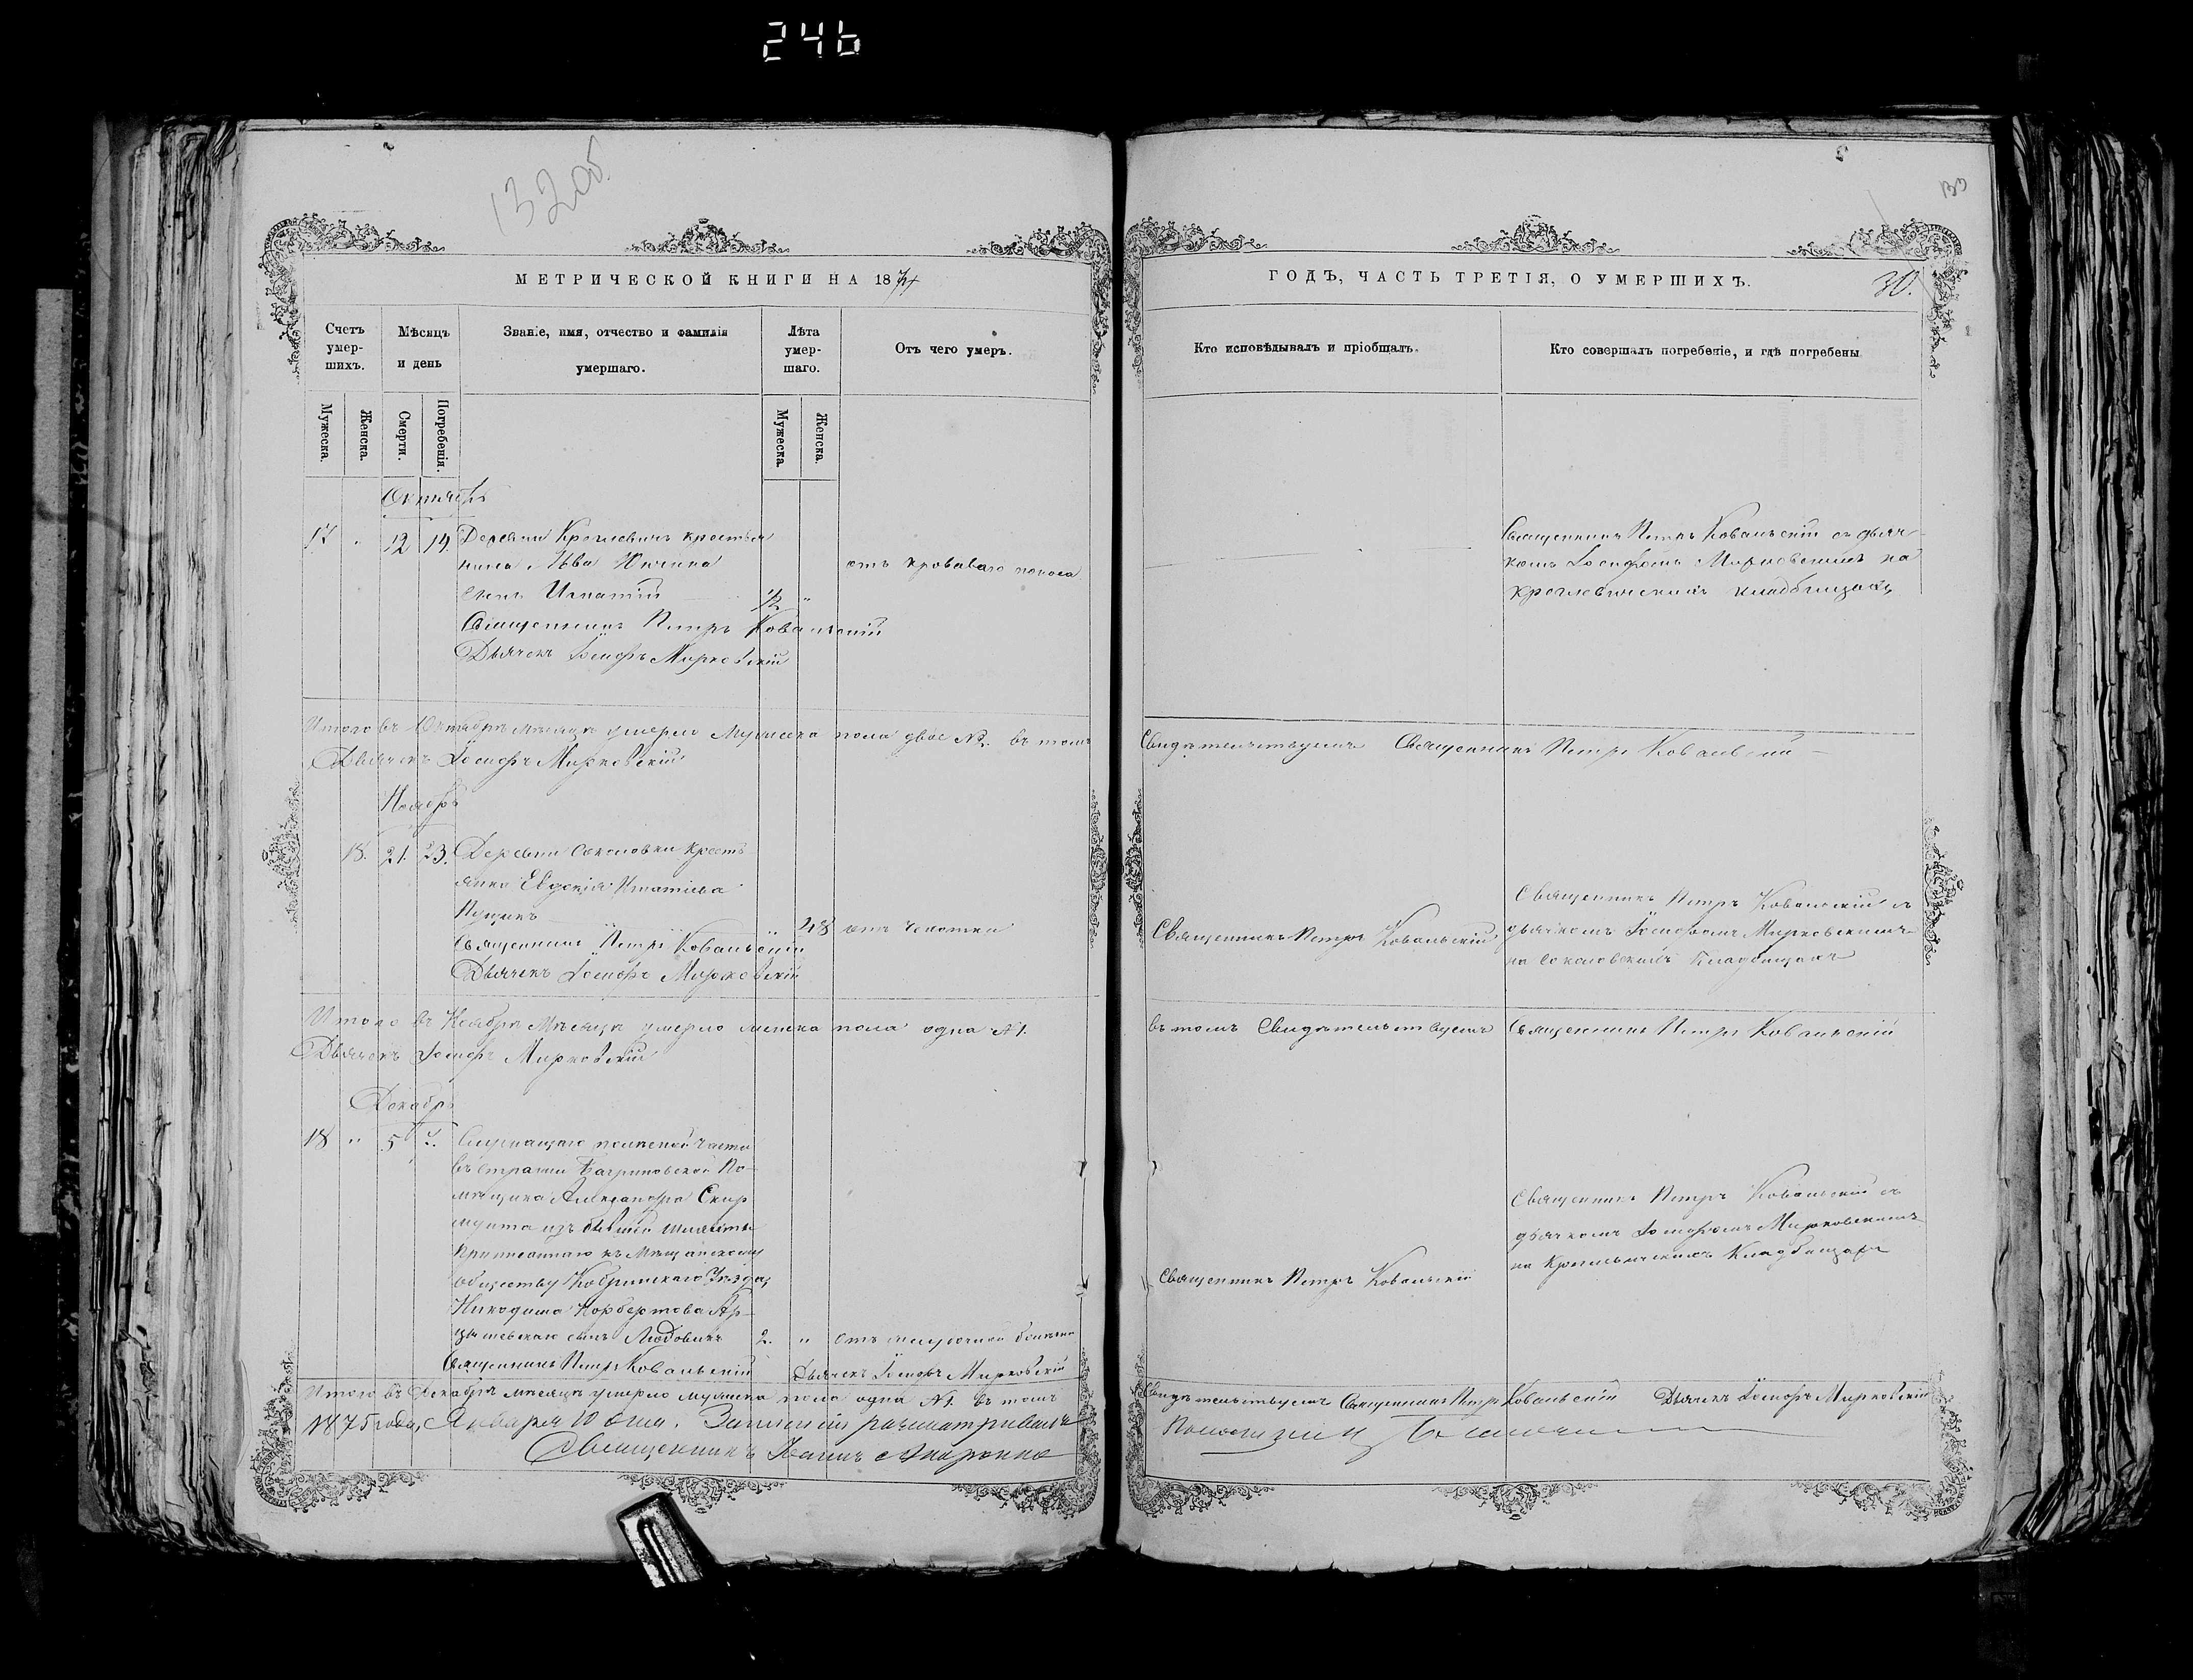 246
132 об.
МЕТРИЧЕСКОЙ КНИГИ НА 1874
Счетъ умер- шихъ.
Мѣсяцъ и день
Званіе, имя, отчество и фамилія умершаго.
Лѣта умер- шаго.
Отъ чего умеръ.
Мужеска.
Женска.
Смерти.
Погребенія.
Мужеска.
Женска.
Октябрь
17 " 12 14 Деревни крестья-
нина
сынъ Игнатій 1/2 " отъ кроваваго поноса
Священникъ Петръ Ковальскій
Дьячекъ Іосифъ Мирковскій
Итого въ Октябрѣ мѣсяцѣ умерло мужеска пола двое №2. въ томъ
Дьячекъ Іосифъ Мирковскій
Ноябрь
18. 21. 23. Деревни Соколовки кресть-
янка Евдокія Игнатіева
" 48 отъ чахотки
Священникъ Петръ Ковальскій
Дьячекъ Іосифъ Мирковскій
Итого въ Ноябрѣ мѣсяцѣ умерло женска пола одна №1.
Дьячекъ Іосифъ Мирковскій
Декабрь
18 " 5 7. Служащаго
въ По-
мѣщика Александра Скир-
мунта изъ бывшей шляхты
приписаннаго къ мѣщанскому
обществу Кобринскаго уѣзда,
Никодима Норбертова Яр-
сынъ Людовикъ 2. " отъ
Священникъ Петръ Ковальскій Дьячекъ Іосифъ Мирковскій
Итого въ Декабрѣ мѣсяцѣ умерло мужеска пола одна №1. въ томъ
1875 года, Января 10 дня. разсматривалъ
Священникъ Іоаннъ
133
30.
ГОДЪ, ЧАСТЬ ТРЕТІЯ, О УМЕРШИХЪ.
Кто исповѣдывалъ и пріобщалъ.
Кто совершалъ погребеніе, и гдѣ погребены
Священникъ Петръ Ковальскій съ дьяч-
комъ Іосифомъ Мирковскимъ на
кладбищахъ
Свидѣтельствуемъ Священникъ Петръ Ковальскій
Священникъ Петръ Ковальскій
Священникъ Петръ Ковальскій съ
дьячкомъ Іосифомъ Мирковскимъ
на Соколовскихъ кладбищахъ
въ томъ Свидѣтельствуемъ Священникъ Петръ Ковальскій
Священникъ Петръ Ковальскій
Священникъ Петръ Ковальскій съ
дьячкомъ Іосифомъ Мирковскимъ
на кладбищахъ
Свидѣтельствуемъ Священникъ Петръ Ковальскій Дьячекъ Іосифъ Мирковскій